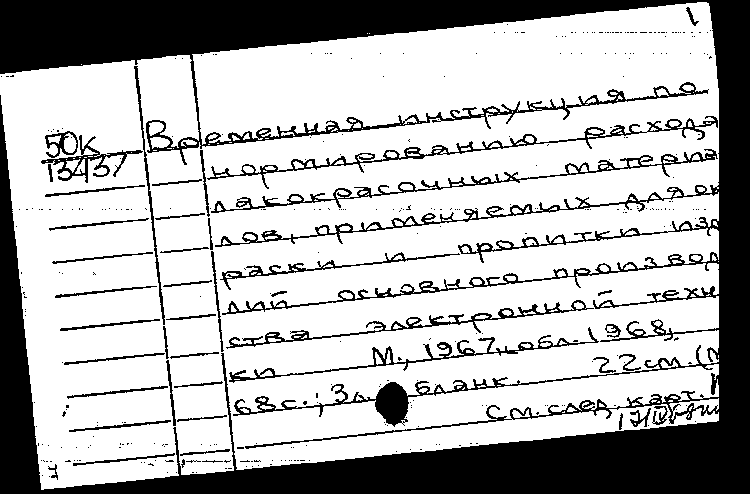 1
50К Временная инструкция по
13437 нормированию расхода
лакокрасочных материа
лов, применяемых для ок
раски и пропитки изде
лий основного производ
ства электронной техни
ки М., 1967, обл. 1968,
68 с.; 3 л. бланк. 22 см. (М
См. след. карт.